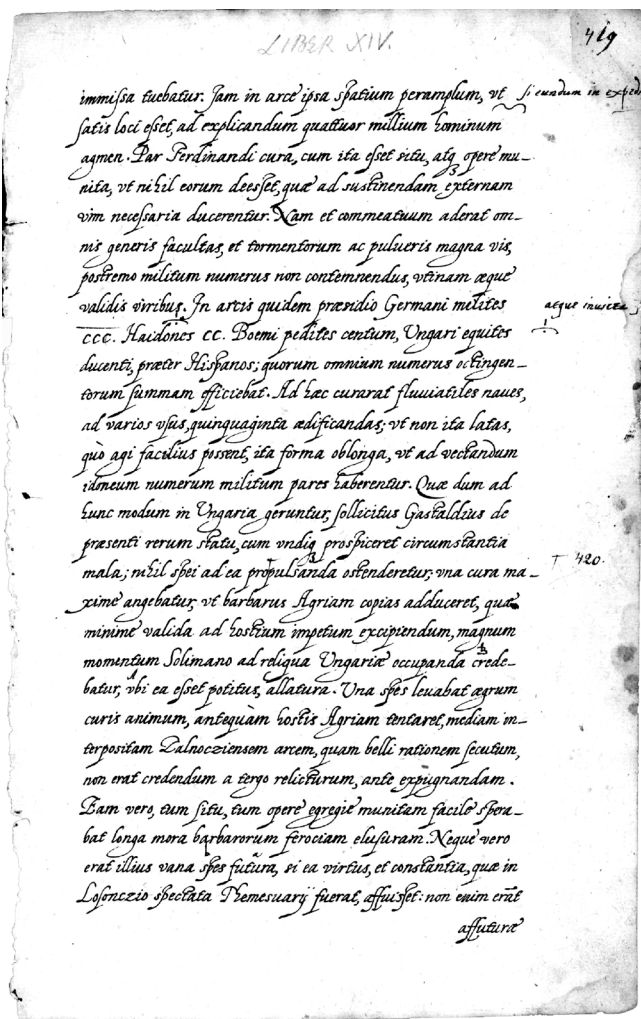 LIBER XIV.
419
immissa tuebatur. Jam in arce ipsa spatium peramplum, vt
si eundum in exped
satis loci esset, ad explicandum quattuor millium hominum
agmen. Par Ferdinandi cura, cum ita esset situ, atq opere mu-
nita, vt nihil eorum deesset, quæ ad sustinendam externam
vim necessaria ducerentur. Nam et commeatuum aderat om-
nis generis facultas, et tormentorum ac pulueris magna vis,
postremo militum numerus non contemnendus, vtinam æque
validis viribus. In arcis quidem præsidio Germani milites
atque inuicta
CCC. Haidones CC. Boemi pedites centum, Ungari equites
ducenti, præter Hispanos; quorum omnium numerus octingen-
torum summam efficiebat. Ad hæc curarat fluuiatiles naues,
ad varios vsus, quinquaginta ædificandas; vt non ita latas,
quò agi facilius possent, ita forma oblonga, vt ad vectandum
idoneum numerum militum pares haberentur. Quæ dum ad
hunc modum in Ungaria geruntur, sollicitus Gastaldius de
præsenti rerum statu, cum vndiq prospiceret circumstantia
mala; nihil spei ad ea propulsanda ostenderetur; vna cura ma-
T 420.
xime angebatur, vt barbarus Agriam copias adduceret, quæ
minime valida ad hostium impetum excipiendum, magnum
momentum Solimano ad reliqua Ungariæ occupanda crede-
batur, vbi ea esset potitus, allatura. Una spes leuabat ægrum
curis animum, antequàm hostis Agriam tentaret, mediam in-
terpositam Zalnocziensem arcem, quam belli rationem secutum,
non erat credendum a tergo relicturum, ante expugnandam.
Eam vero, tum situ, tum opere egregie munitam facile spera-
bat longa mora barbarorum ferociam elusuram. Neque vero
erat illius vana spes futura, si ea virtus, et constantia, quæ in
Losonczio spectata Themesuarij fuerat, affuisset: non enim erāt
affuturæ